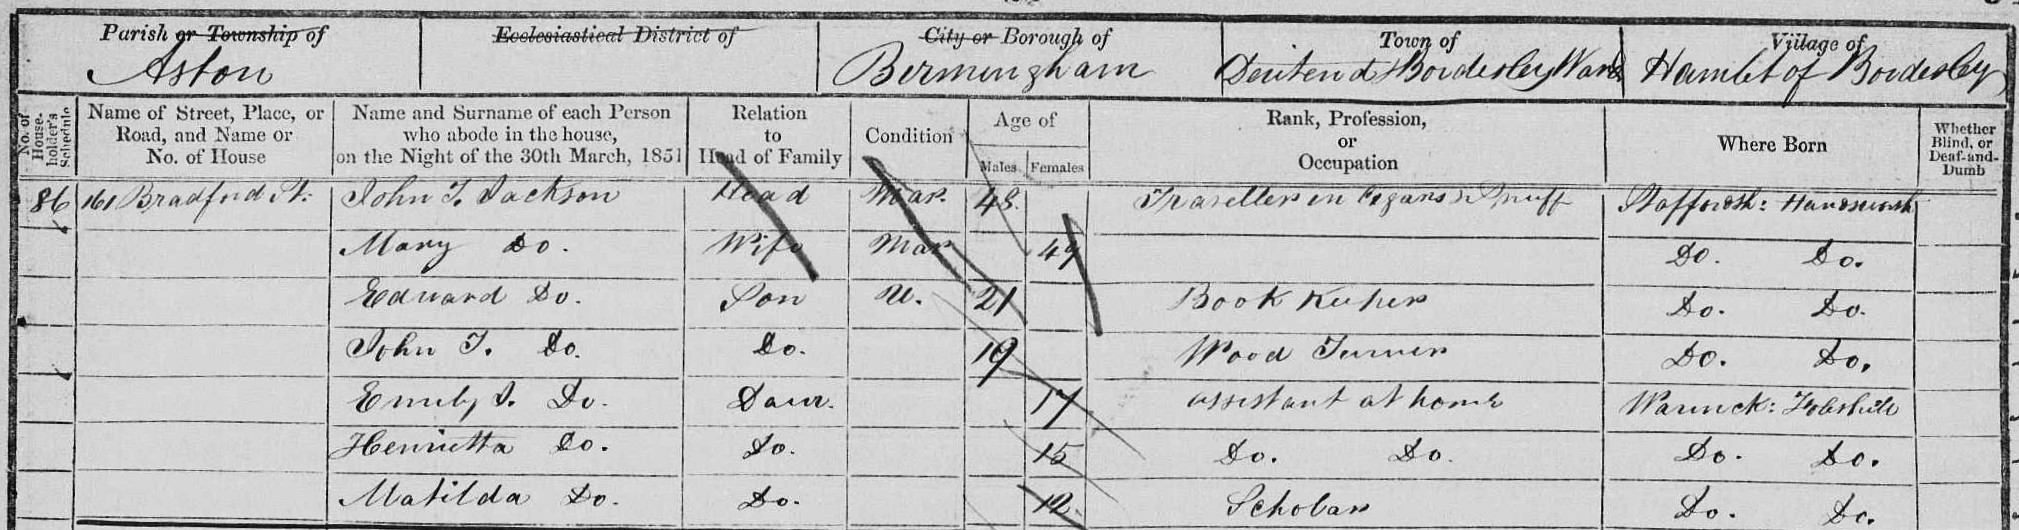 Parish or Township of	Ecclesiastical District of	City or Borough of	Town of	Village of
Aston	Birmingham	Deritend & Bordesley Ward	Hamlet of Bordesley
No. of House-holder's Schedule	Name of Street, Place, or Road, and Name or No. of House	Name and Surname of each Person who abode in the house, on the Night of the 30th March, 1851	Relation to Head of Family	Condition	Age of Males Females	Rank, Profession, or Occupation	Where Born	Whether Blind, or Deaf-and-Dumb
86	161 Bradford St.	John T. Jackson	Head	Mar.	48	Traveller in Cigars & Snuff	Staffordsh: Handsworth
Mary Do.	Wife	Mar	49	Do. Do.
Edward Do.	Son	U.	21	Book Keeper	Do. Do.
John T. Do.	Do.	19	Wood Turner	Do. Do.
Emily Do.	Daur.	17	assistant at home	Warwick:
Henrietta Do.	Do.	15	Do. Do.	Do. Do.
Matilda Do.	Do.	12	Scholar	Do. Do.